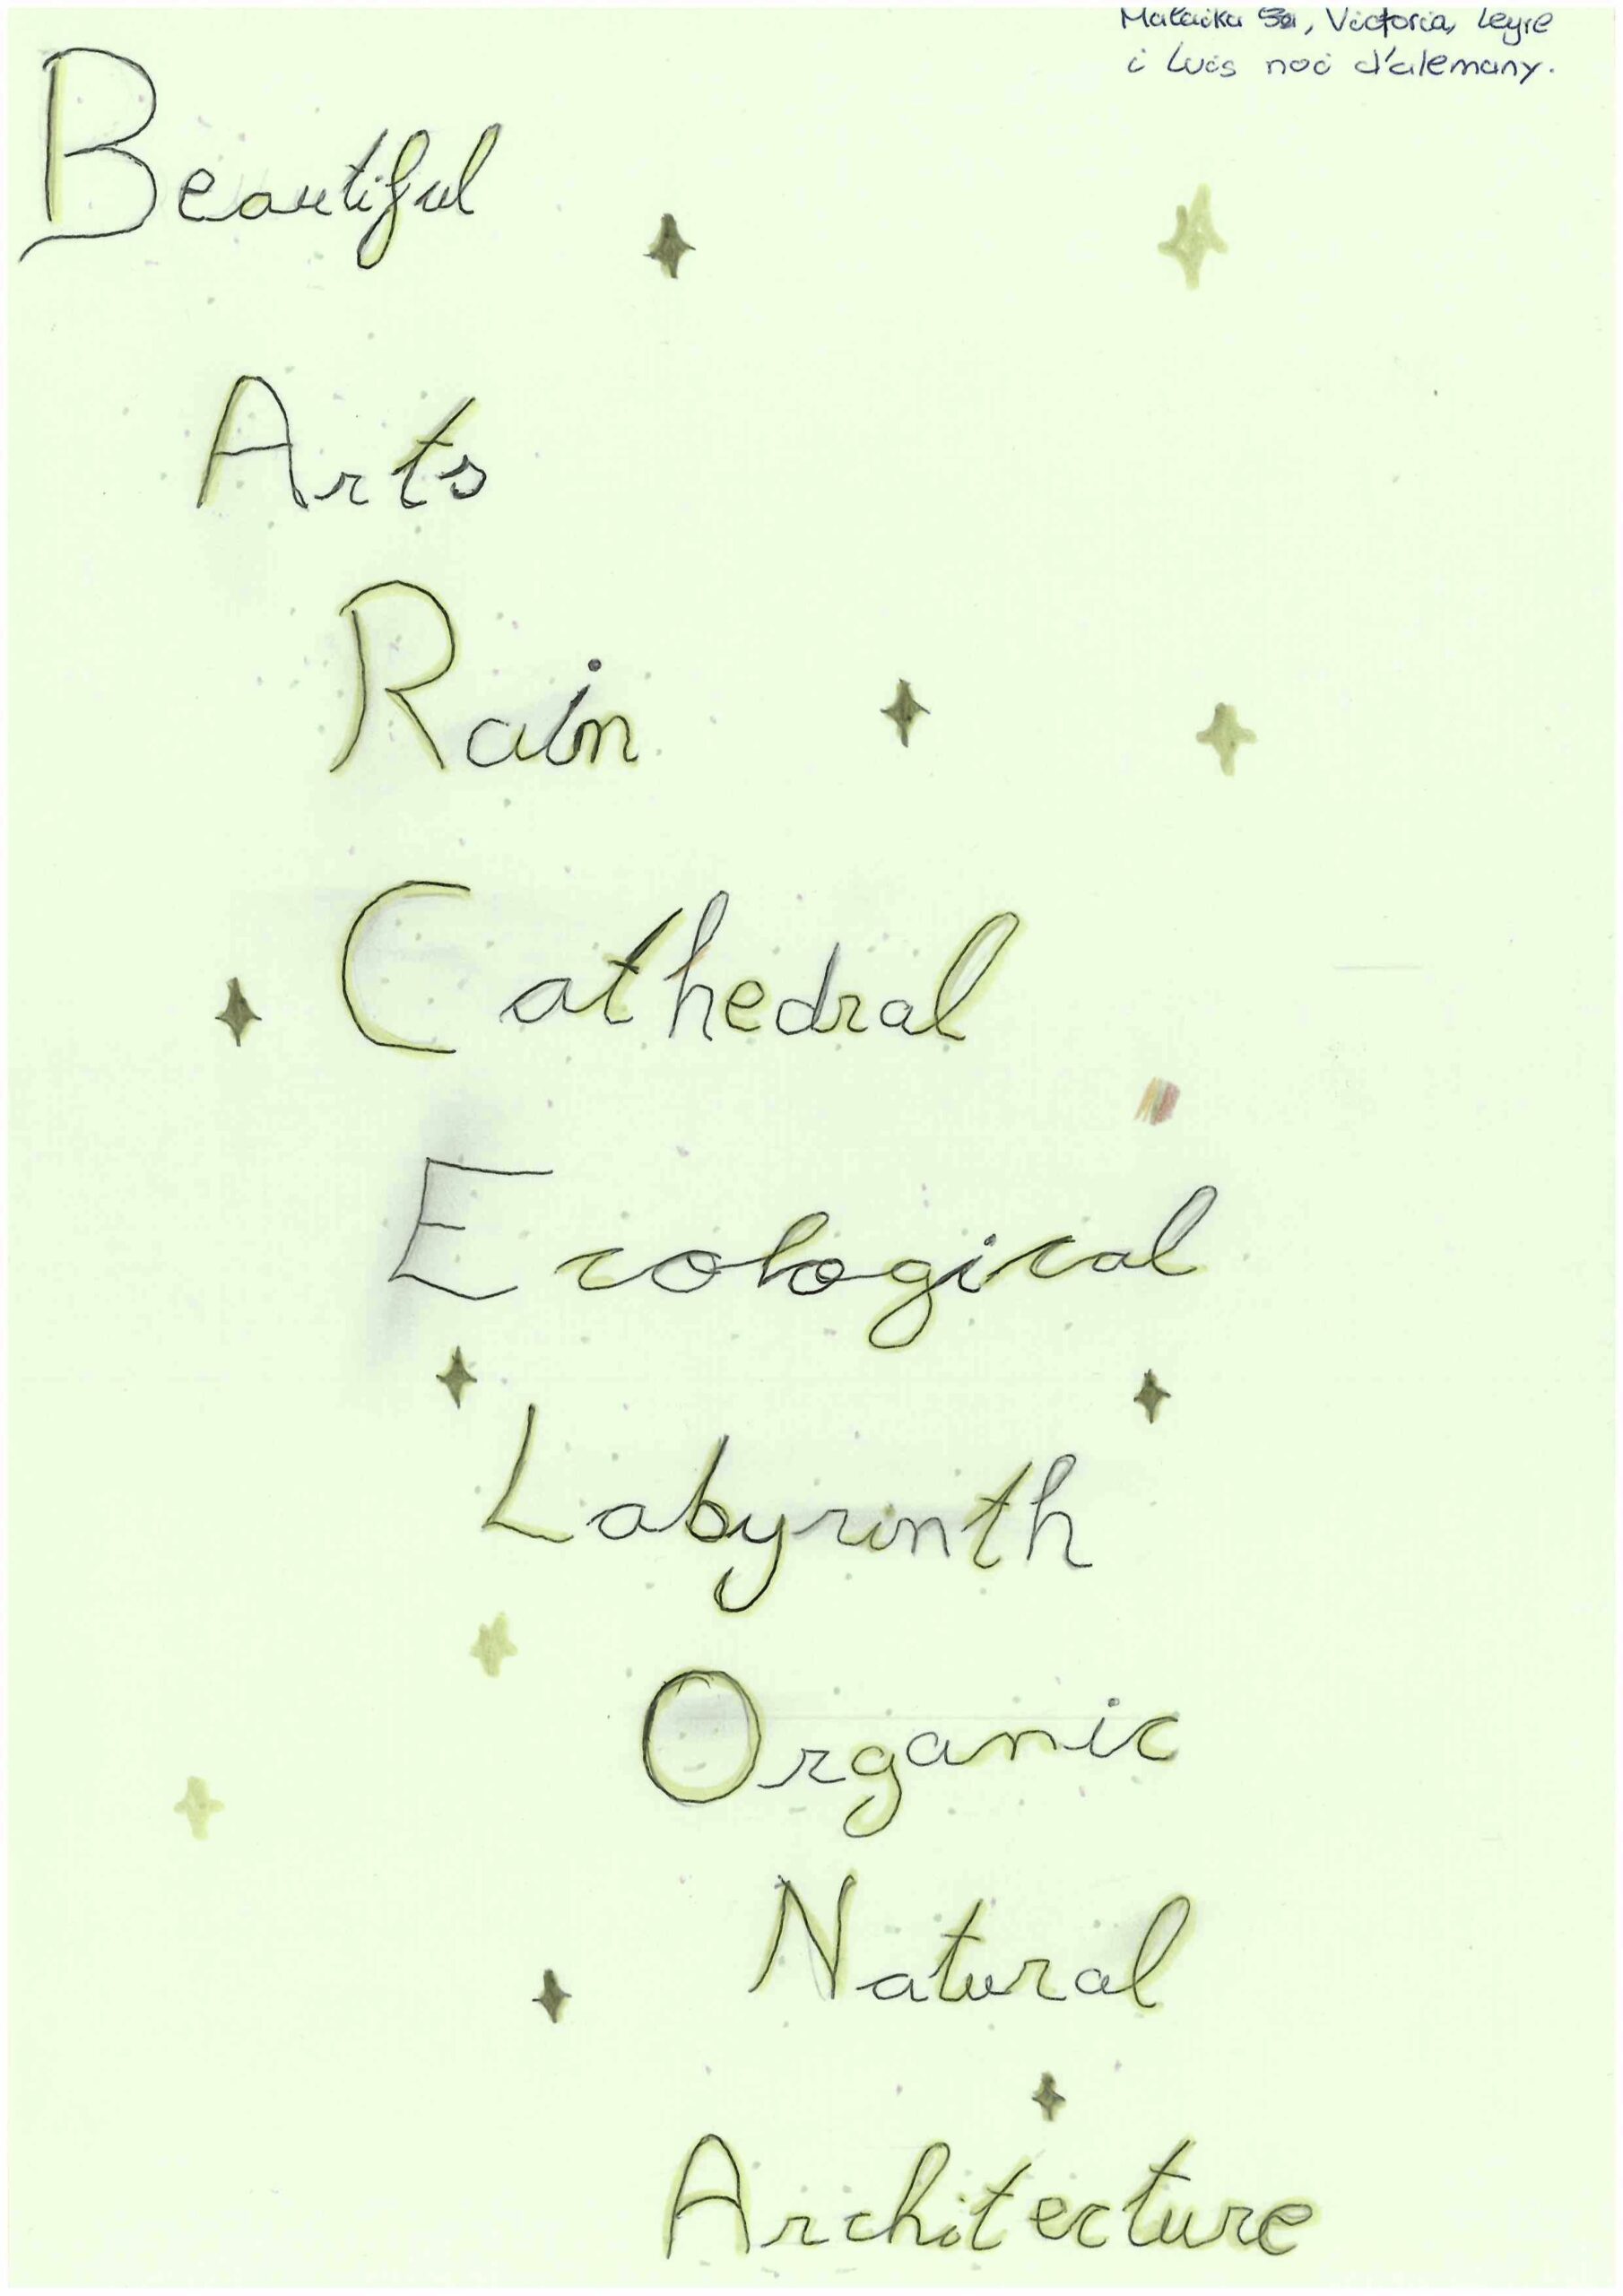 Malaika Sa, Victoria, Leyre
i Luis noi d'alemany.
Beautiful
Arts
Rain
Cathedral
Ecological
Labyrinth
Organic
Natural
Architecture